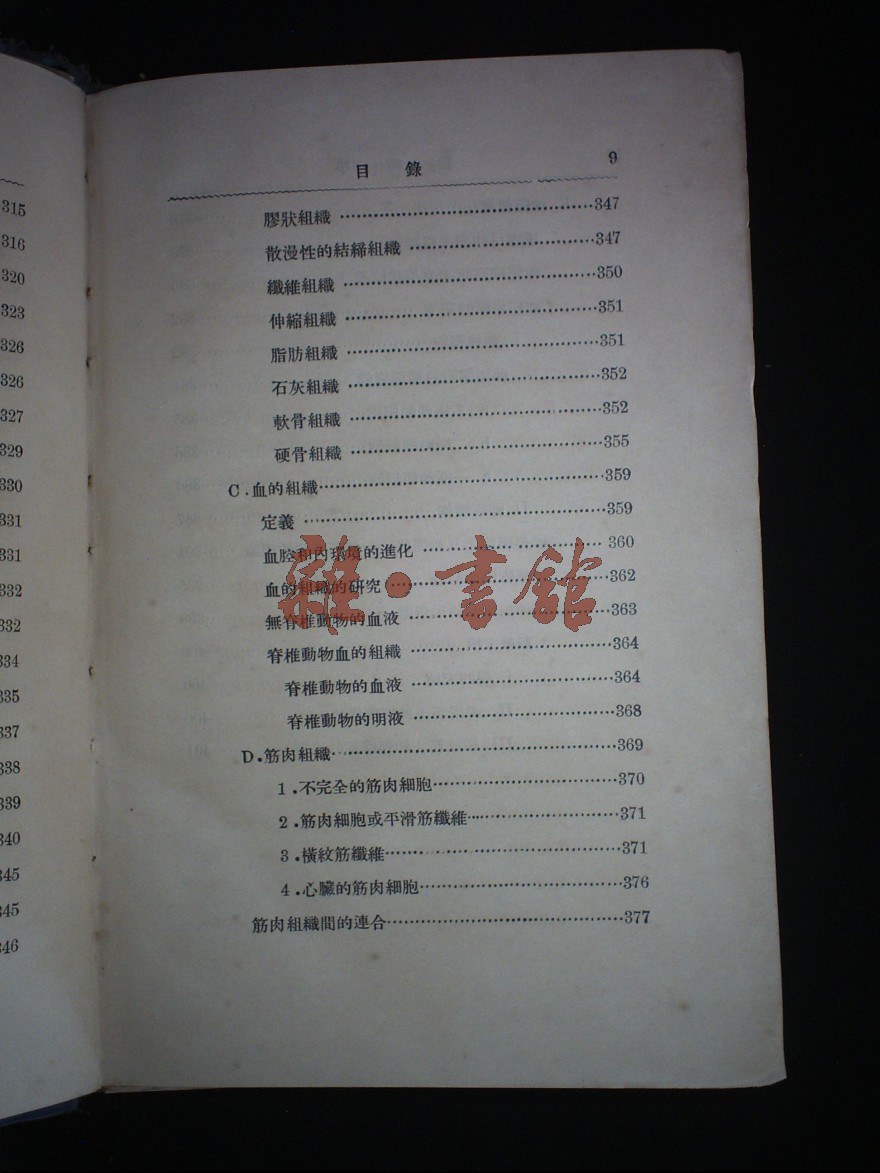 315
316
320
323
326
326
327
329
330
331
331
332
332
334
335
337
338
339
340
345
345
346
目 錄 9
膠狀組織 347
散漫性的結締組織 347
纖維組織 350
伸縮組織 351
脂肪組織 351
石灰組織 352
軟骨組織 352
硬骨組織 355
C.血的組織 359
定義 359
血腔和內環境的進化 360
血的組織的研究 362
無脊椎動物的血液 363
脊椎動物血的組織 364
脊椎動物的血液 364
脊椎動物的明液 368
D.筋肉組織 369
1.不完全的筋肉細胞 370
2.筋肉細胞或平滑筋纖維 371
3.橫紋筋纖維 371
4.心臟的筋肉細胞 376
筋肉組織間的連合 377
雜·書館